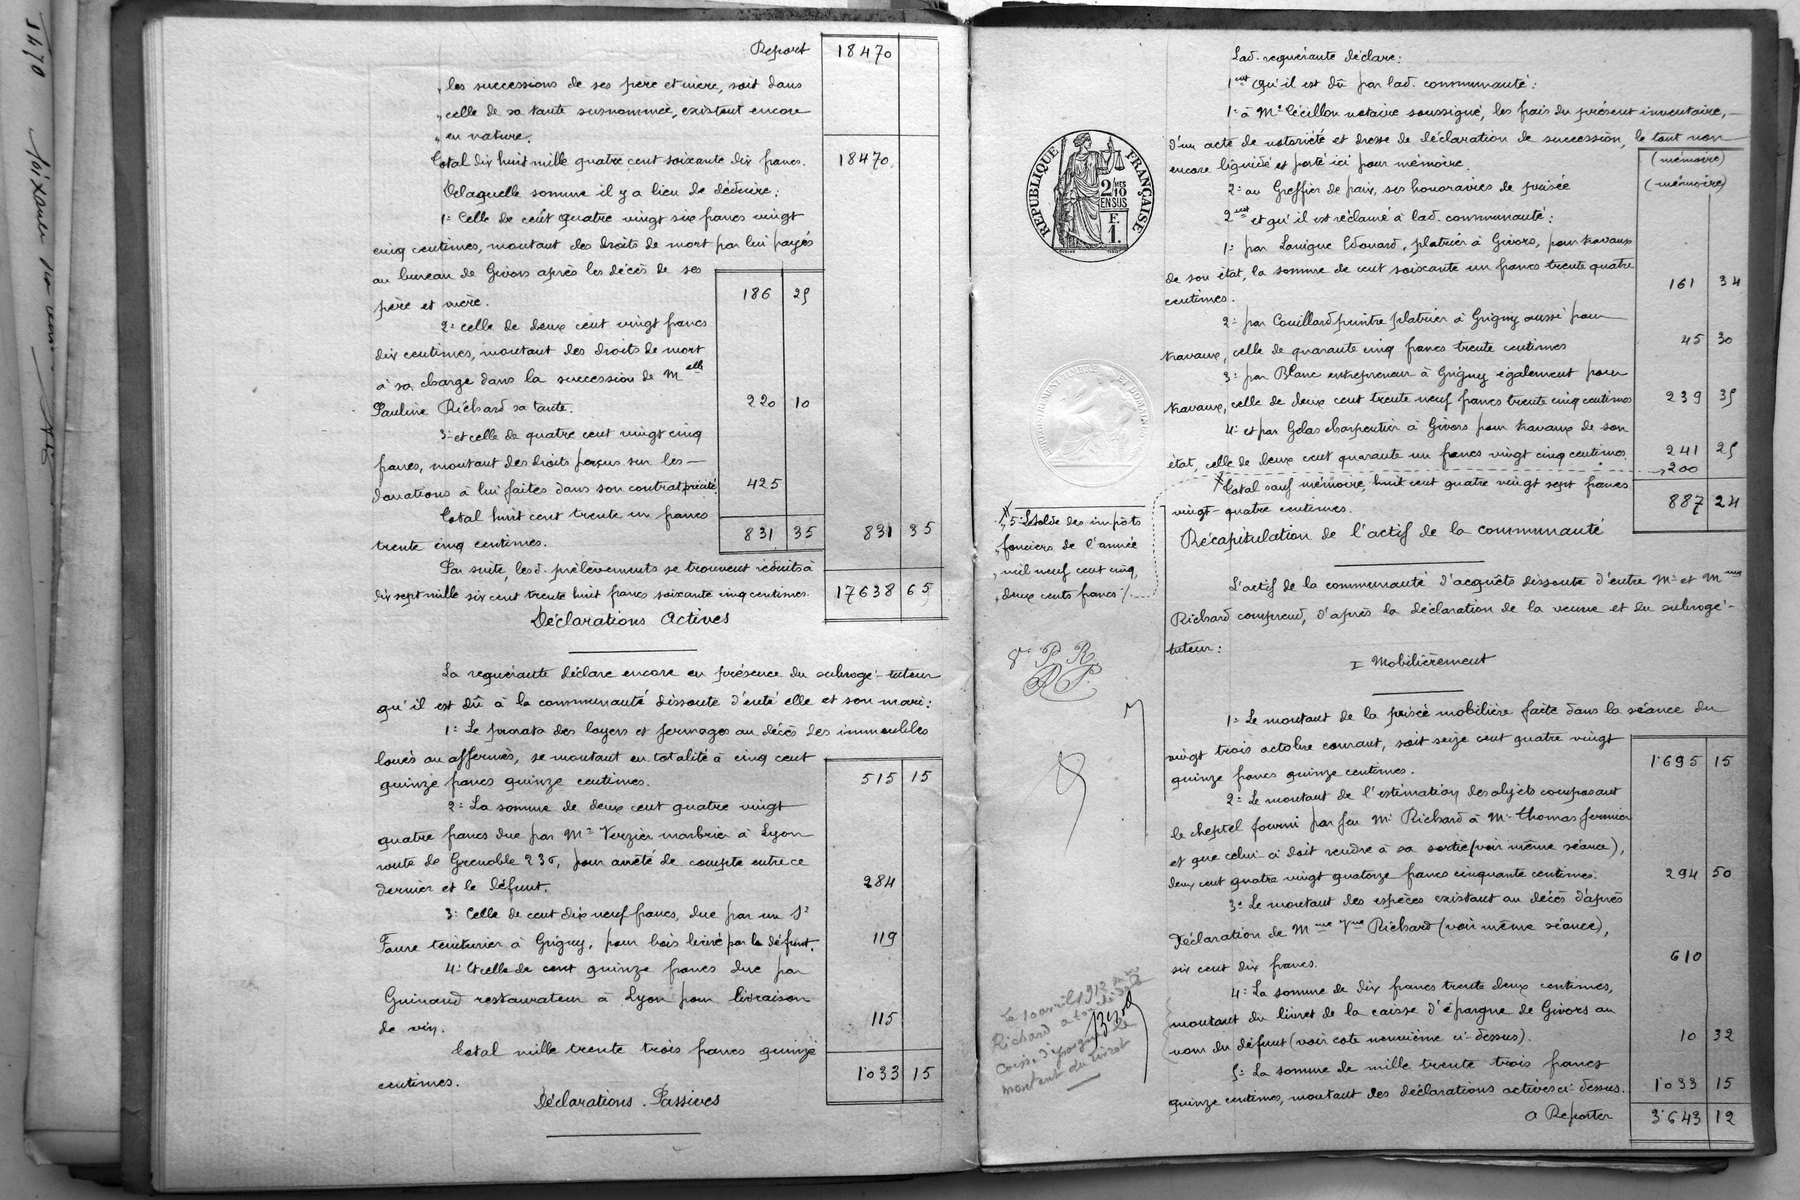 Report 18470
„ les successions de ses père et mère, soit dans
„ celle de sa tante susnommée, existant encore
„ en nature.
Total dix huit mille quatre cent soixante dix francs. 18470.
De laquelle somme il y a lieu de déduire:
1º Celle de cent quatre vingt six francs vingt
cinq centimes, montant des droits de mort par lui payés
au bureau de Givors après les décès de ses
père et mère. 186 25
2º celle de deux cent vingt francs
dix centimes, montant des droits de mort
à sa charge dans la succession de Melle
Pauline Richard sa tante. 220 10
3º et celle de quatre cent vingt cinq
francs, montant des droits perçus sur les —
donations à lui faites dans son contrat précité. 425
Total huit cent trente un francs
trente cinq centimes. 831 35 831 35
Par suite, lesd. prélèvements se trouvent réduits à
dix sept mille six cent trente huit francs soixante cinq centimes. 17638 65
Déclarations Actives
La requérante déclare encore en présence du subrogé-tuteur
qu'il est dû à la communauté dissoute d'entre elle et son mari:
1º Le prorata des loyers et fermages au décès des immeubles
loués ou affermés, se montant en totalité à cinq cent
quinze francs quinze centimes. 515 15
2º La somme de deux cent quatre vingt
quatre francs due par Mr Verzier marbrier à Lyon
route de Grenoble 236, pour arrêté de compte entre ce
dernier et le défunt. 284
3º Celle de cent dix neuf francs, due par un Sr
Faure teinturier à Grigny, pour bois livré par le défunt. 119
4º Et celle de cent quinze francs due par
Guinand restaurateur à Lyon pour livraison
de vin. 115
Total mille trente trois francs quinze
centimes. 1033 15
Déclarations Passives
Lad. requérante déclare:
1ent Qu'il est dû par lad. communauté:
1º à Me Cécillon notaire soussigné, les frais du présent inventaire, —
d'un acte de notoriété et dresse de déclaration de succession, le tout non
encore liquidé et porté ici pour mémoire. (mémoire)
2º au Greffier de paix, ses honoraires de prisée (mémoire)
2ent et qu'il est réclamé à lad. communauté:
1º par Lavigne Edouard, platrier à Givors, pour travaux
de son état, la somme de cent soixante un francs trente quatre
centimes. 161 34
2º par Couillard peintre platrier à Grigny aussi pour
travaux, celle de quarante cinq francs trente centimes 45 30
3º par Blanc entrepreneur à Grigny également pour
travaux, celle de deux cent trente neuf francs trente cinq centimes 239 35
4º et par Gelas charpentier à Givors pour travaux de son
état, celle de deux cent quarante un francs vingt cinq centimes. 241 25
200
Total sauf mémoire, huit cent quatre vingt sept francs
vingt-quatre centimes. 887 24
REPUBLIQUE FRANÇAISE
2/10
EN SUS
F.
1.
„ 5º Solde des impôts
„ fonciers de l'année
„ mil neuf cent cinq,
„ deux cents francs ./.
P. R.
Récapitulation de l'actif de la communauté
L'actif de la communauté d'acquêts dissoute d'entre Mr et Mme
Richard comprend, d'après la déclaration de la veuve et du subrogé-
tuteur:
I Mobilièrement
1º Le montant de la prisée mobilière faite dans la séance du
vingt trois octobre courant, soit seize cent quatre vingt
quinze francs quinze centimes. 1695 15
2º Le montant de l'estimation des objets composant
le cheptel fourni par feu Mr Richard à Mr Thomas fermier
et que celui-ci doit rendre à sa sortie (voir même séance),
deux cent quatre vingt quatorze francs cinquante centimes. 294 50
3º Le montant des espèces existant au décès d'après
déclaration de Mme Vve Richard (voir même séance),
six cent dix francs. 610
4º La somme de dix francs trente deux centimes,
montant du livret de la caisse d'épargne de Givors au
nom du défunt (voir cote neuvième ci-dessus). 10 32
5º La somme de mille trente trois francs
quinze centimes, montant des déclarations actives ci-dessus. 1033 15
A Reporter 3643 12
Le 10 avril 1912
Richard a
caisse d'épargne
montant du livret